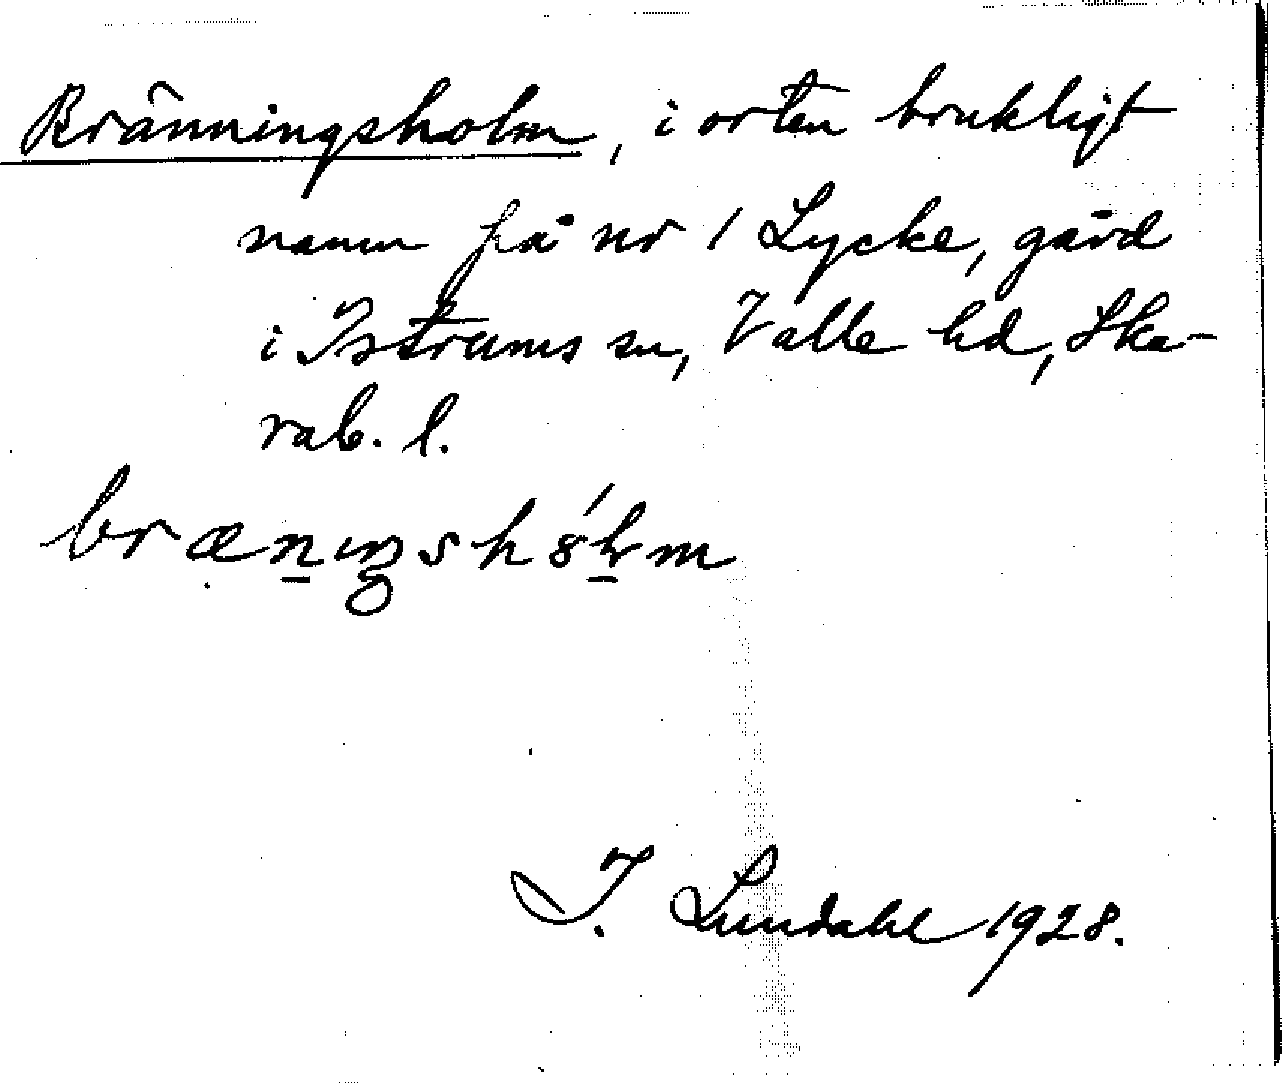 Bränningsholm, i orten brukligt
namn på nr 1 Lycke, gård
i Istrums sn, Valle hd, Ska-
rab. l.
I. Lundahl 1928.